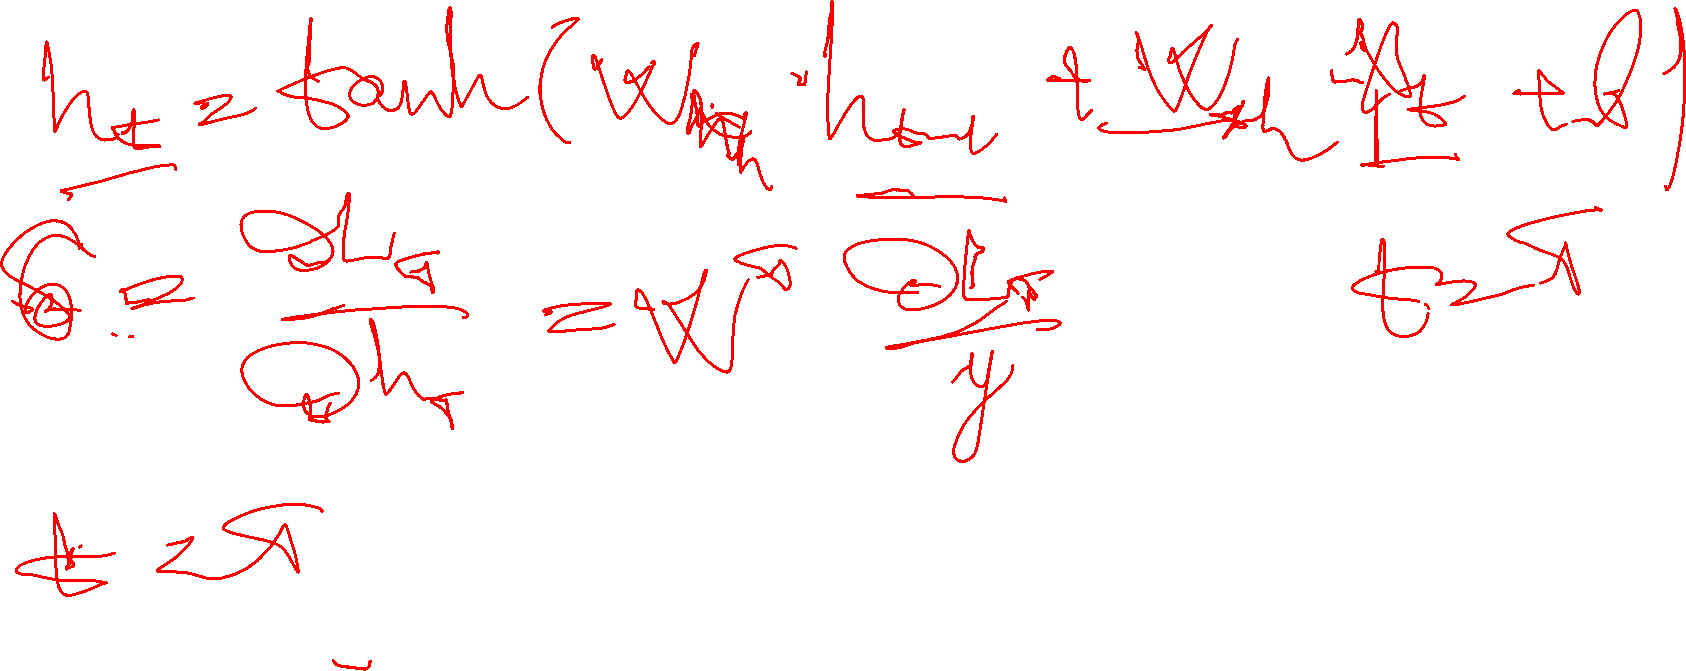 h_t = tanh(W_hh · h_t-1 + W_xh · x_t + b)
δ = ∂L_T / ∂h_T = W^T ∂L_T / y t = T
t = T